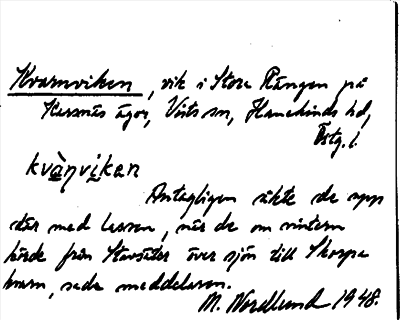 Kvarnviken, vik i Stora Rängen på
Kassnäs ägor, Vists sn, Hanekinds hd,
Östg. l.
kvàṇviken
Antagligen åkte de upp
där med lassen, när de om vintern
körde från Stavsäter över sjön till Skorpa
kvarn, sade meddelaren.
M. Nordlund 1948.